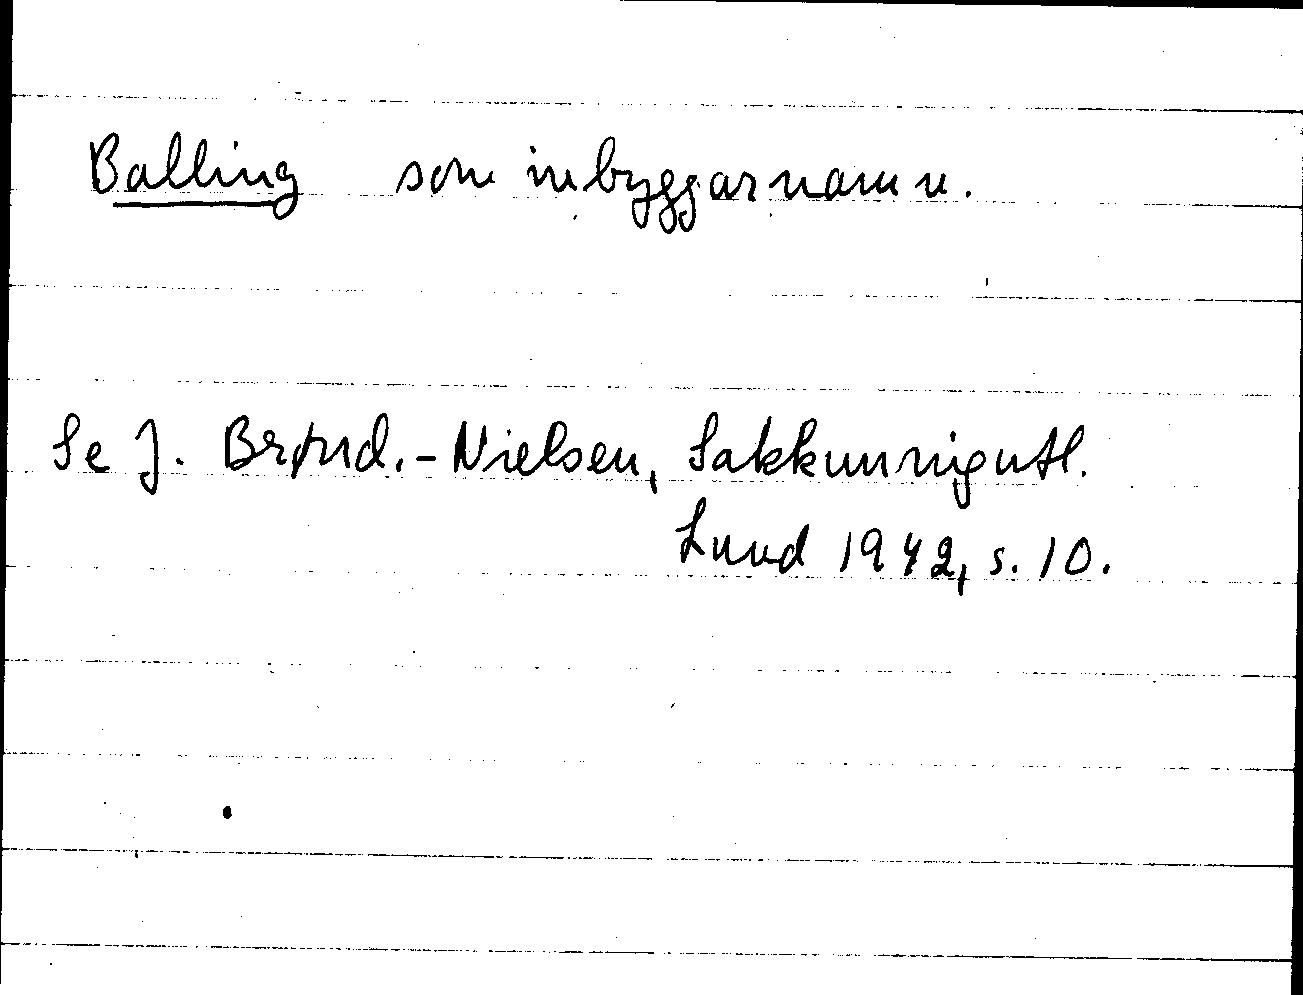 Balling som inbyggarnamn.
Se J. Brønd.-Nielsen, Sakkunnigutl.
Lund 1942, s. 10.